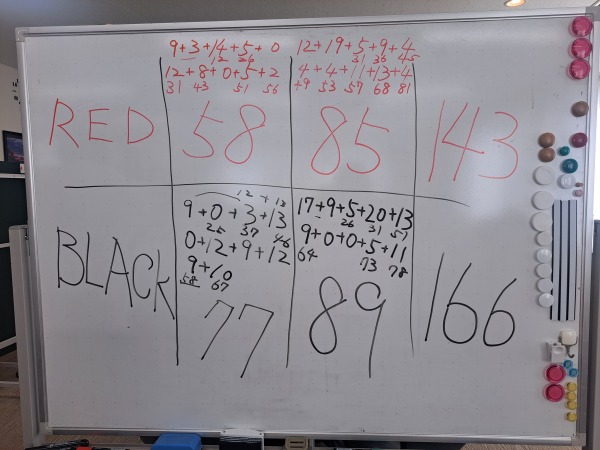 9+3+14+5+0
12 26
12+8+0+5+2
31 43 51 56
12+19+5+9+4
31 36 45
4+4+11+13+4
49 53 57 68 81
RED 58 85 143
12+13
9+0+3+13
25 37 46
0+12+9+12
9+10
58 67
17+9+5+20+13
26 31 51
9+0+0+5+11
64 73 78
BLACK 77 89 166